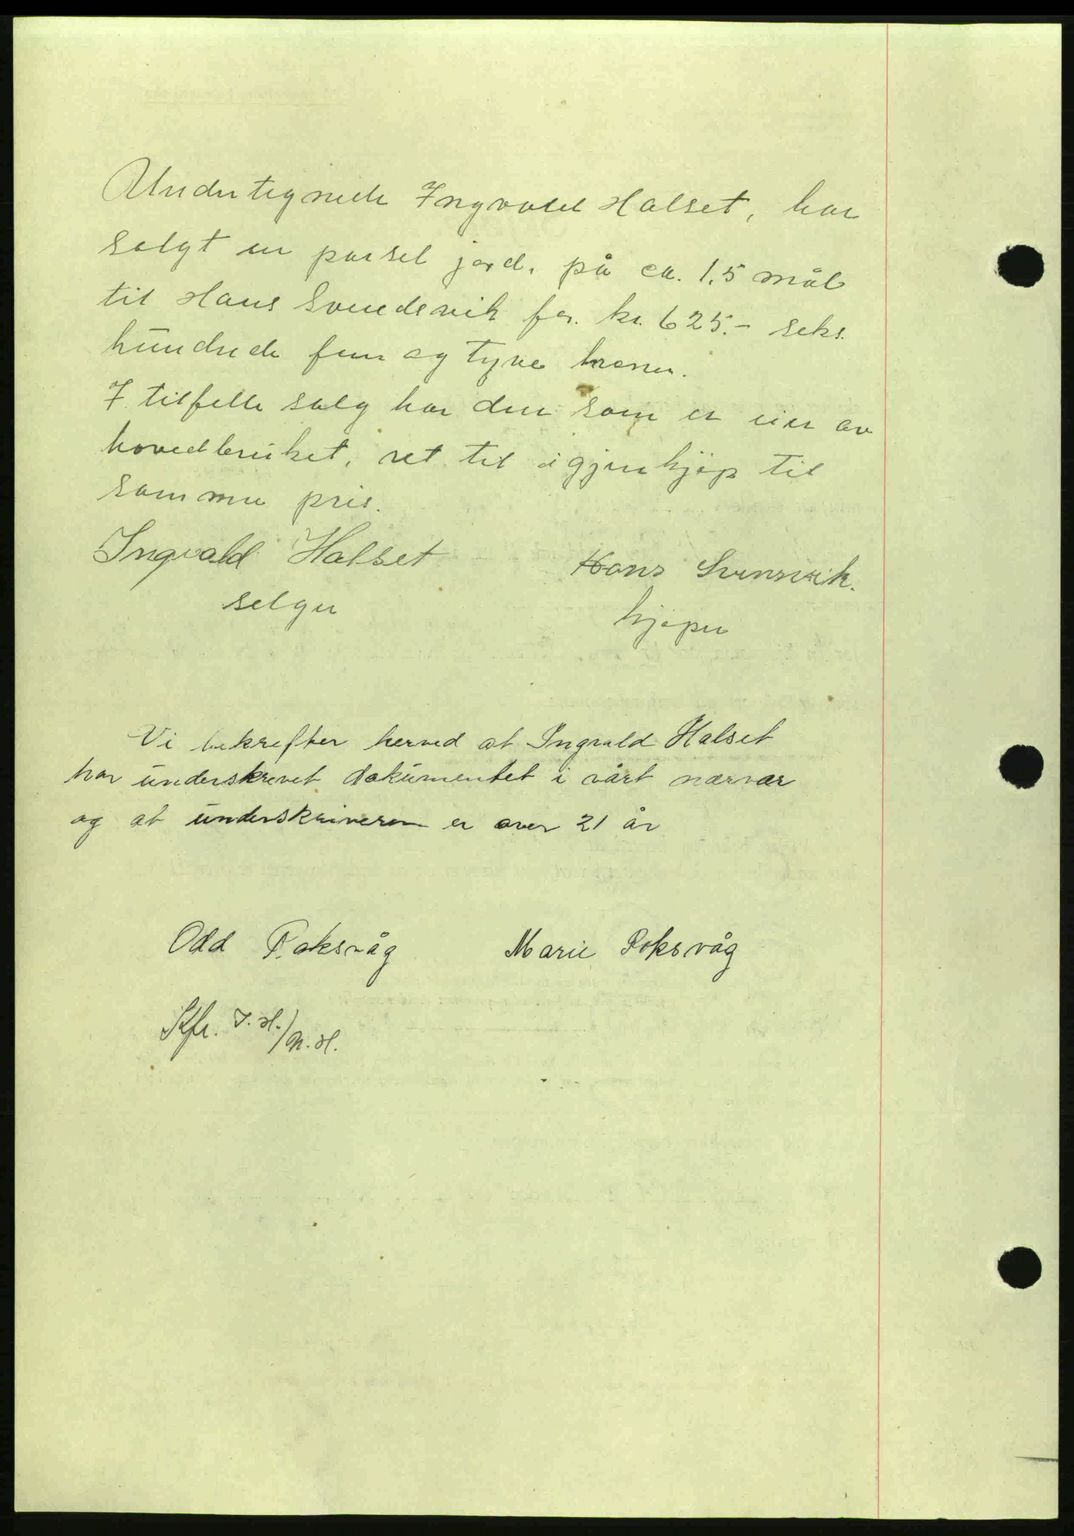 Undertegnede Ingvald Halset, har
solgt en parsel jord, på ca. 1,5 mål
til Hans Svendsvik for. kr. 625.- seks.
hundrede fem og tyve kroner.
I tilfelle salg har den som er eier av
hovedbruket, ret til igjenkjøp til
samme pris.
Ingvald Halset Hans Svensvik.
selger kjøper
Vi bekrefter herved at Ingvald Halset
har underskrevet dokumentet i vårt nærvær
og at underskriveren er over 21 år
Odd Roksvåg Marie Roksvåg
Kfr. I.H./N.H.